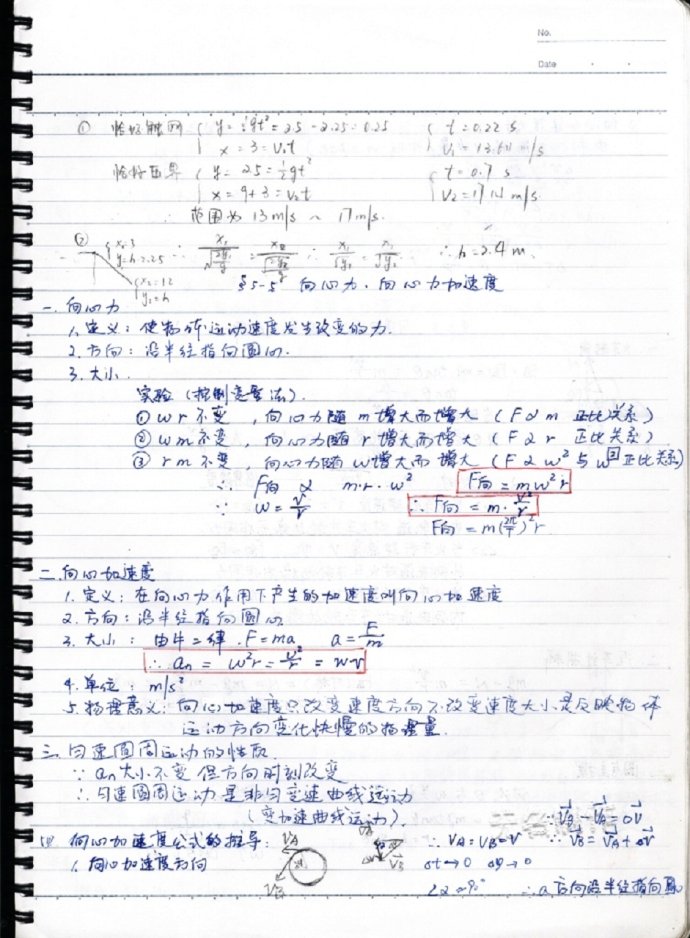 No.
Date
① 恰好触网 { y = ½gt² = 2.5 - 2.25 = 0.25 { t = 0.22 s
x = 3 = V₁t V₁ = 13.611 m/s
恰好压界 { y = 2.5 = ½gt² { t = 0.7 s
x = 9+3 = V₂t V₂ = 17.14 m/s
∴ 范围为 13 m/s ~ 17 m/s.
② { x₁ = 3 ∴ x₁/√(2y₁/g) = x₂/√(2y₂/g) ∴ x₁/√y₁ = x₂/√y₂ ∴ h = 2.4 m.
y₁ = h - 2.25
{ x₂ = 12
y₂ = h
§5-5 向心力、向心力加速度
一. 向心力
1. 定义: 使物体运动速度发生改变的力.
2. 方向: 沿半径指向圆心.
3. 大小.
实验 (控制变量法).
① w r 不变, 向心力随 m 增大而增大 (F ∝ m 正比关系)
② w m 不变, 向心力随 r 增大而增大 (F ∝ r 正比关系)
③ r m 不变, 向心力随 w 增大而增大 (F ∝ w² 与 w² 正比关系)
∴ F向 ∝ m·r·w² F向 = mw²r
∵ w = v/r ∴ F向 = m·v²/r
F向 = m(2π/T)²r
二. 向心加速度
1. 定义: 在向心力作用下产生的加速度叫向心加速度
2. 方向: 沿半径指向圆心
3. 大小: 由牛二律. F = ma a = F/m
∴ an = w²r = v²/r = wv
4. 单位: m/s²
5. 物理意义: 向心加速度只改变速度方向不改变速度大小是反映物体
运动方向变化快慢的物理量.
三. 匀速圆周运动的性质.
∵ an大小不变 但方向时刻改变
∴ 匀速圆周运动是非匀变速曲线运动
(变加速曲线运动).
四. 向心加速度公式的推导:
1. 向心加速度方向
VA
VB
∴ VA = VB = V ∵ VB = VA + △V
△t→0 △φ→0
∠α≈90° ∴ a方向沿半径指向圆